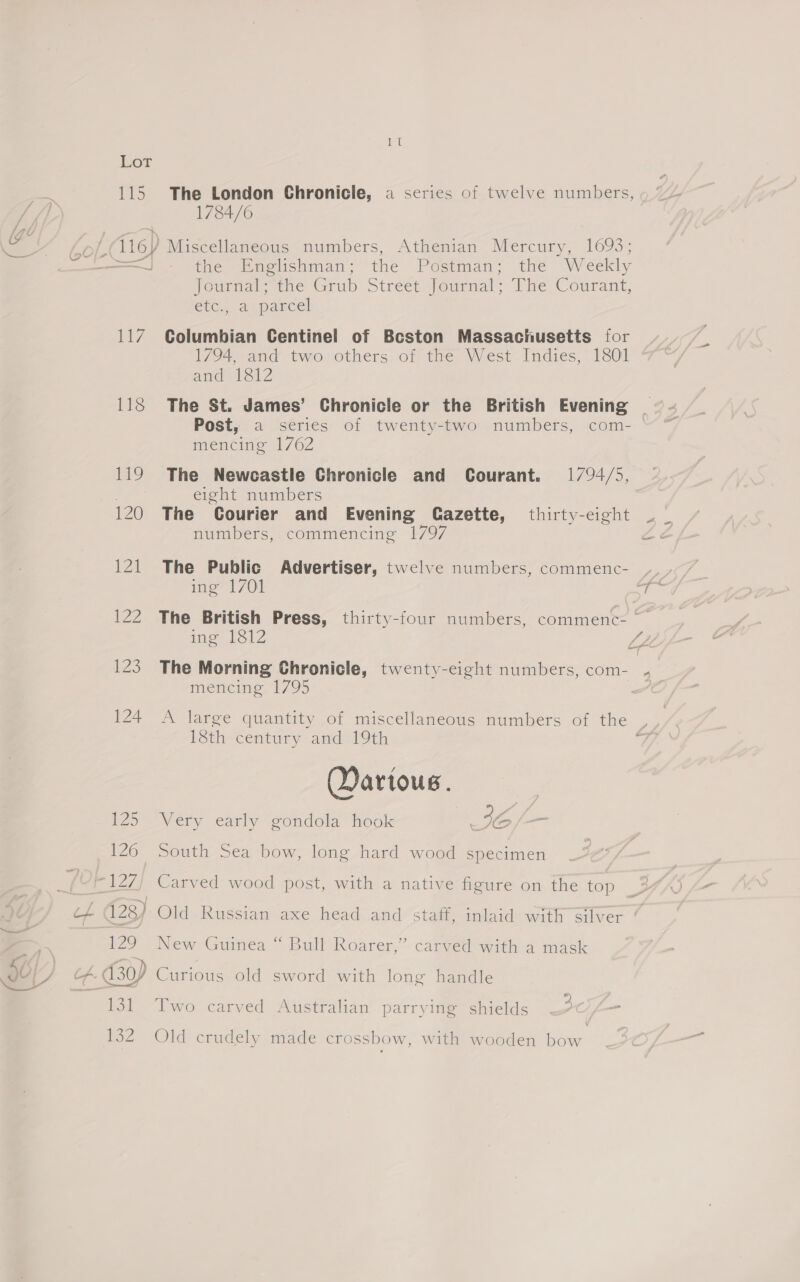 11
LOT
115 The London Chronicle, a series of twelve numbers,
1784/6
116 Miscellaneous numbers, Athenian Mercury, 1693;
the Englishman; the Postman; the Weekly
Journal; the Grub Street Journal; The Courant,
etc., a parcel
117 Columbian Centinel of Boston Massachusetts for
1794, and two others of the West Indies, 1801
and 1812
118 The St. James' Chronicle or the British Evening
Post, a series of twenty-two numbers, com-
mencing 1762
119 The Newcastle Chronicle and Courant. 1794/5,
eight numbers
120 The Courier and Evening Gazette, thirty-eight
numbers, commencing 1797
121 The Public Advertiser, twelve numbers, commenc-
ing 1701
122 The British Press, thirty-four numbers, commenc-
ing 1812
123 The Morning Chronicle, twenty-eight numbers, com-
mencing 1795
124 A large quantity of miscellaneous numbers of the
18th century and 19th
Various.
125 Very early gondola hook 36/-
126 South Sea bow, long hard wood specimen
127 Carved wood post, with a native figure on the top
128 Old Russian axe head and staff, inlaid with silver
129 New Guinea “ Bull Roarer,” carved with a mask
130 Curious old sword with long handle
131 Two carved Australian parrying shields
132 Old crudely made crossbow, with wooden bow